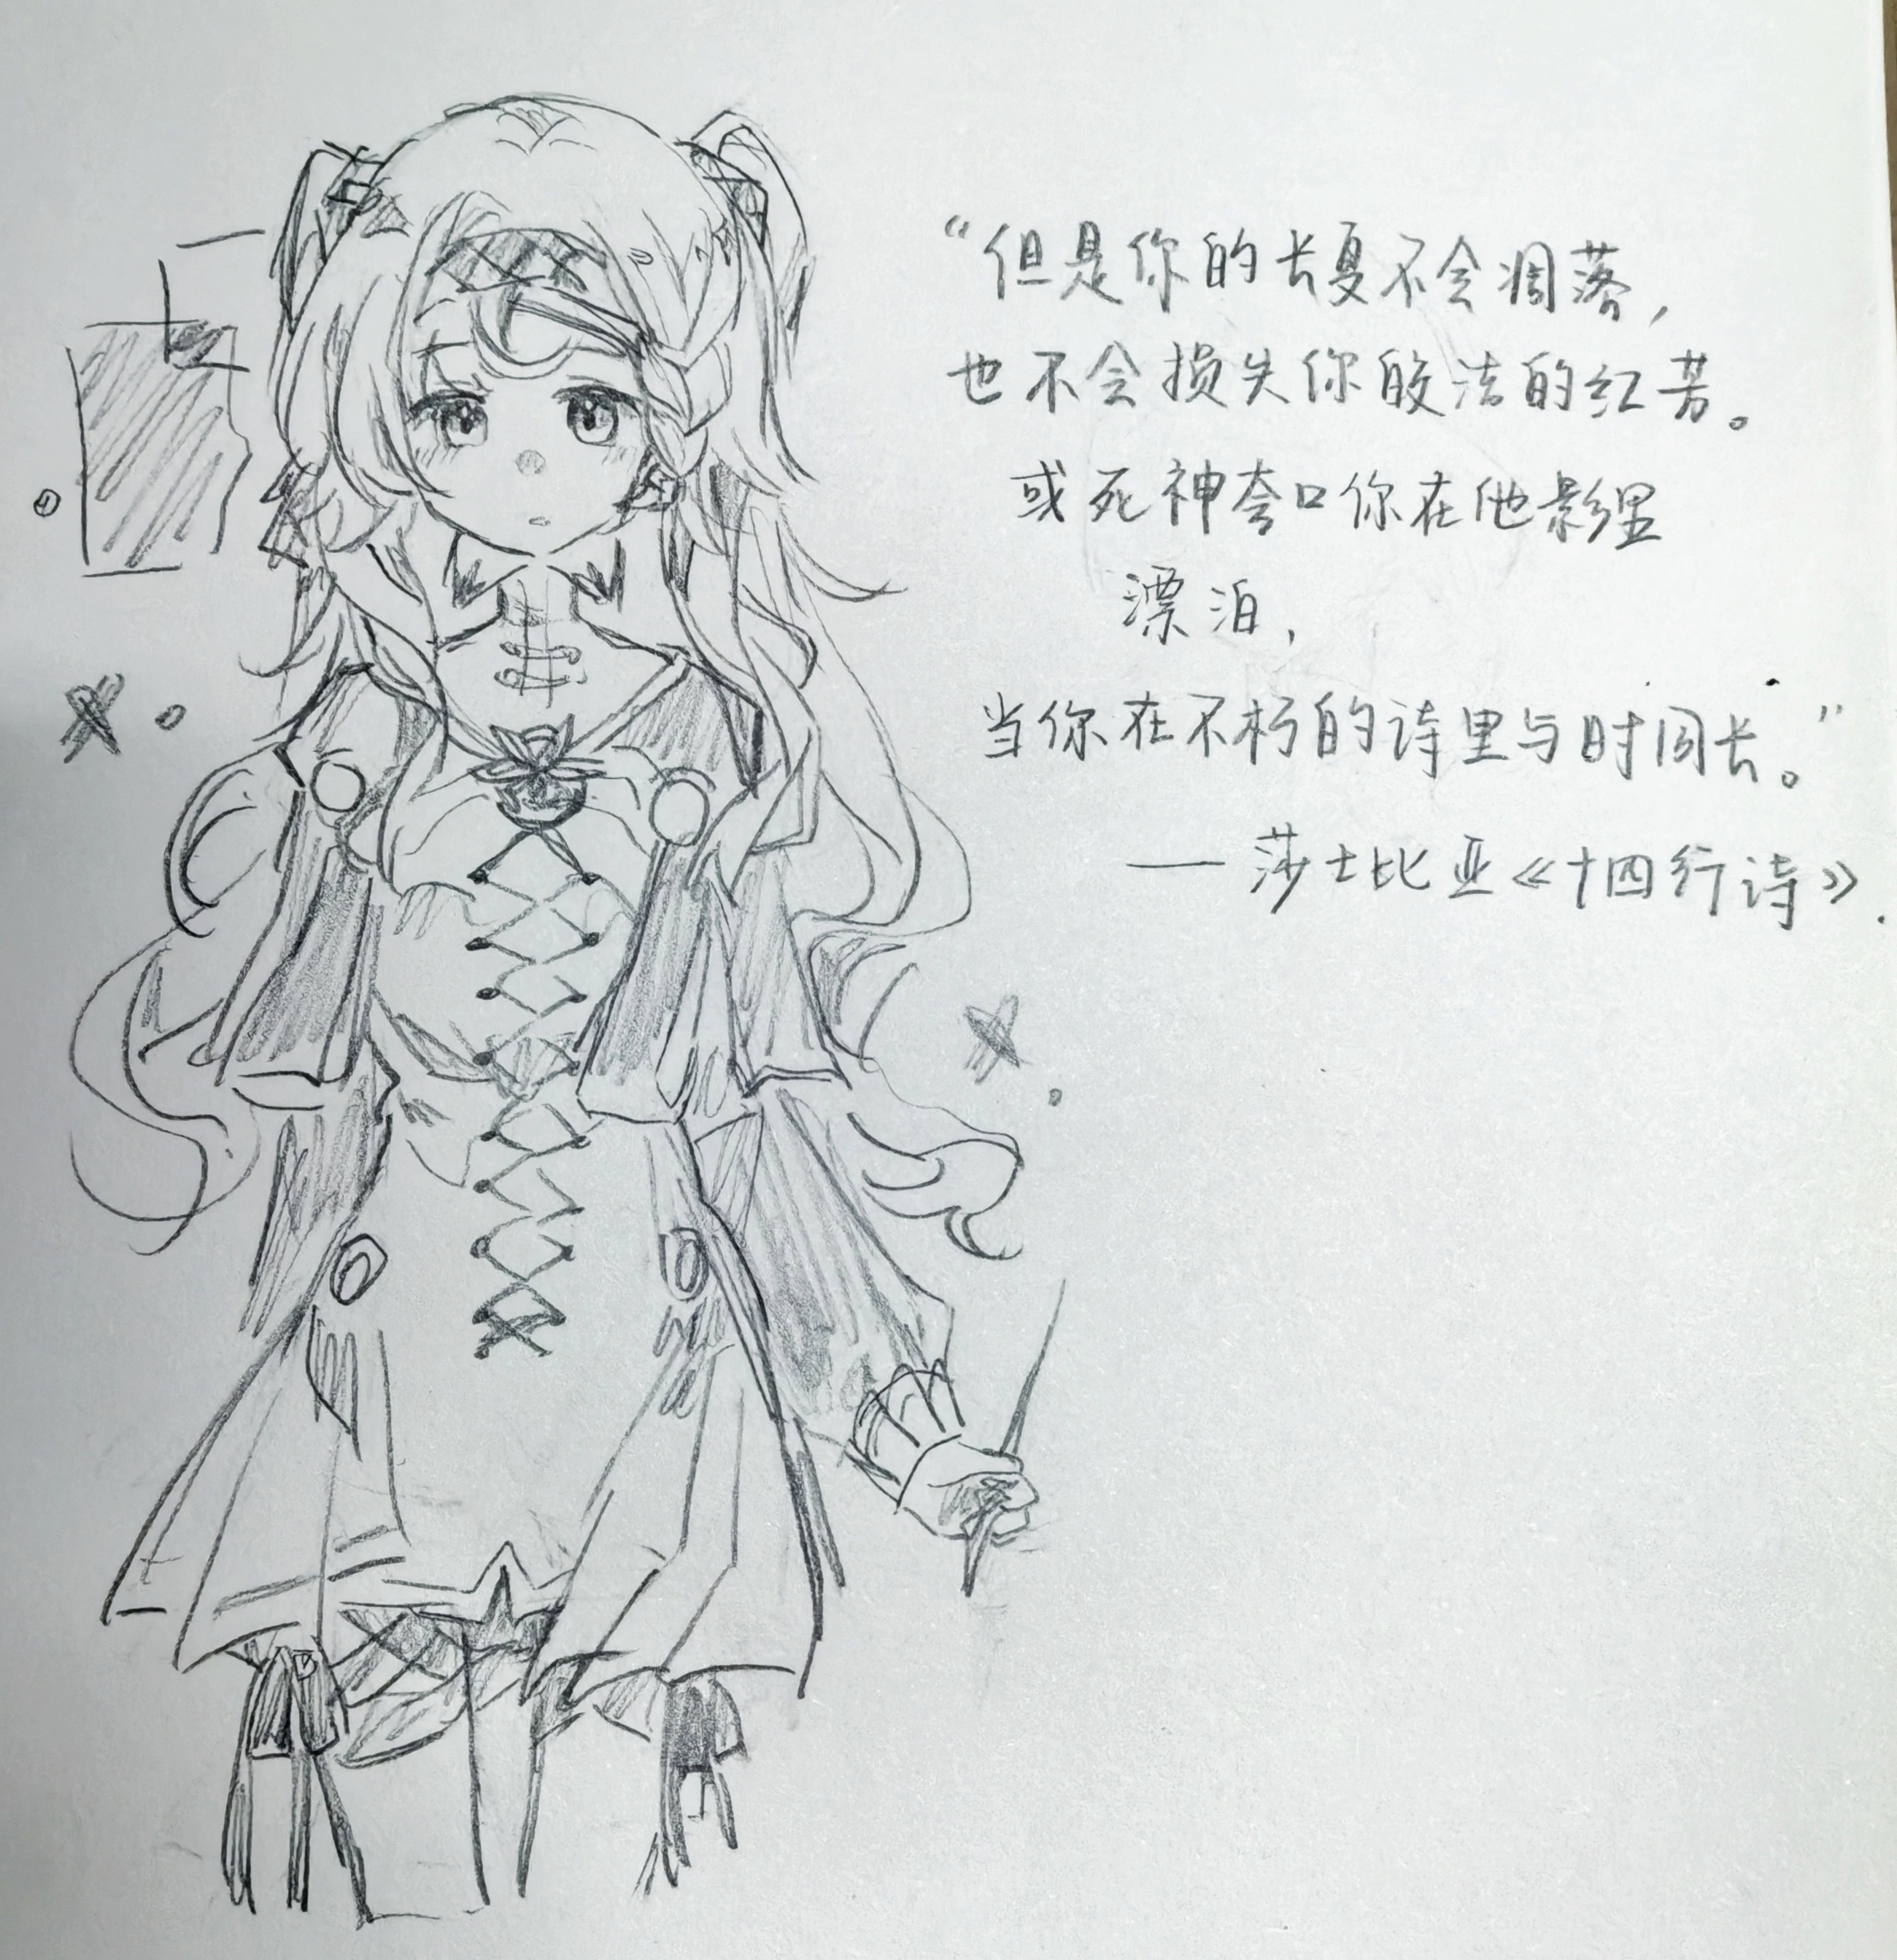 “但是你的长夏不会凋落，
也不会损失你皎洁的红芳。
或死神夸口你在他影里
漂泊，
当你在不朽的诗里与时间长。”
——莎士比亚《十四行诗》.